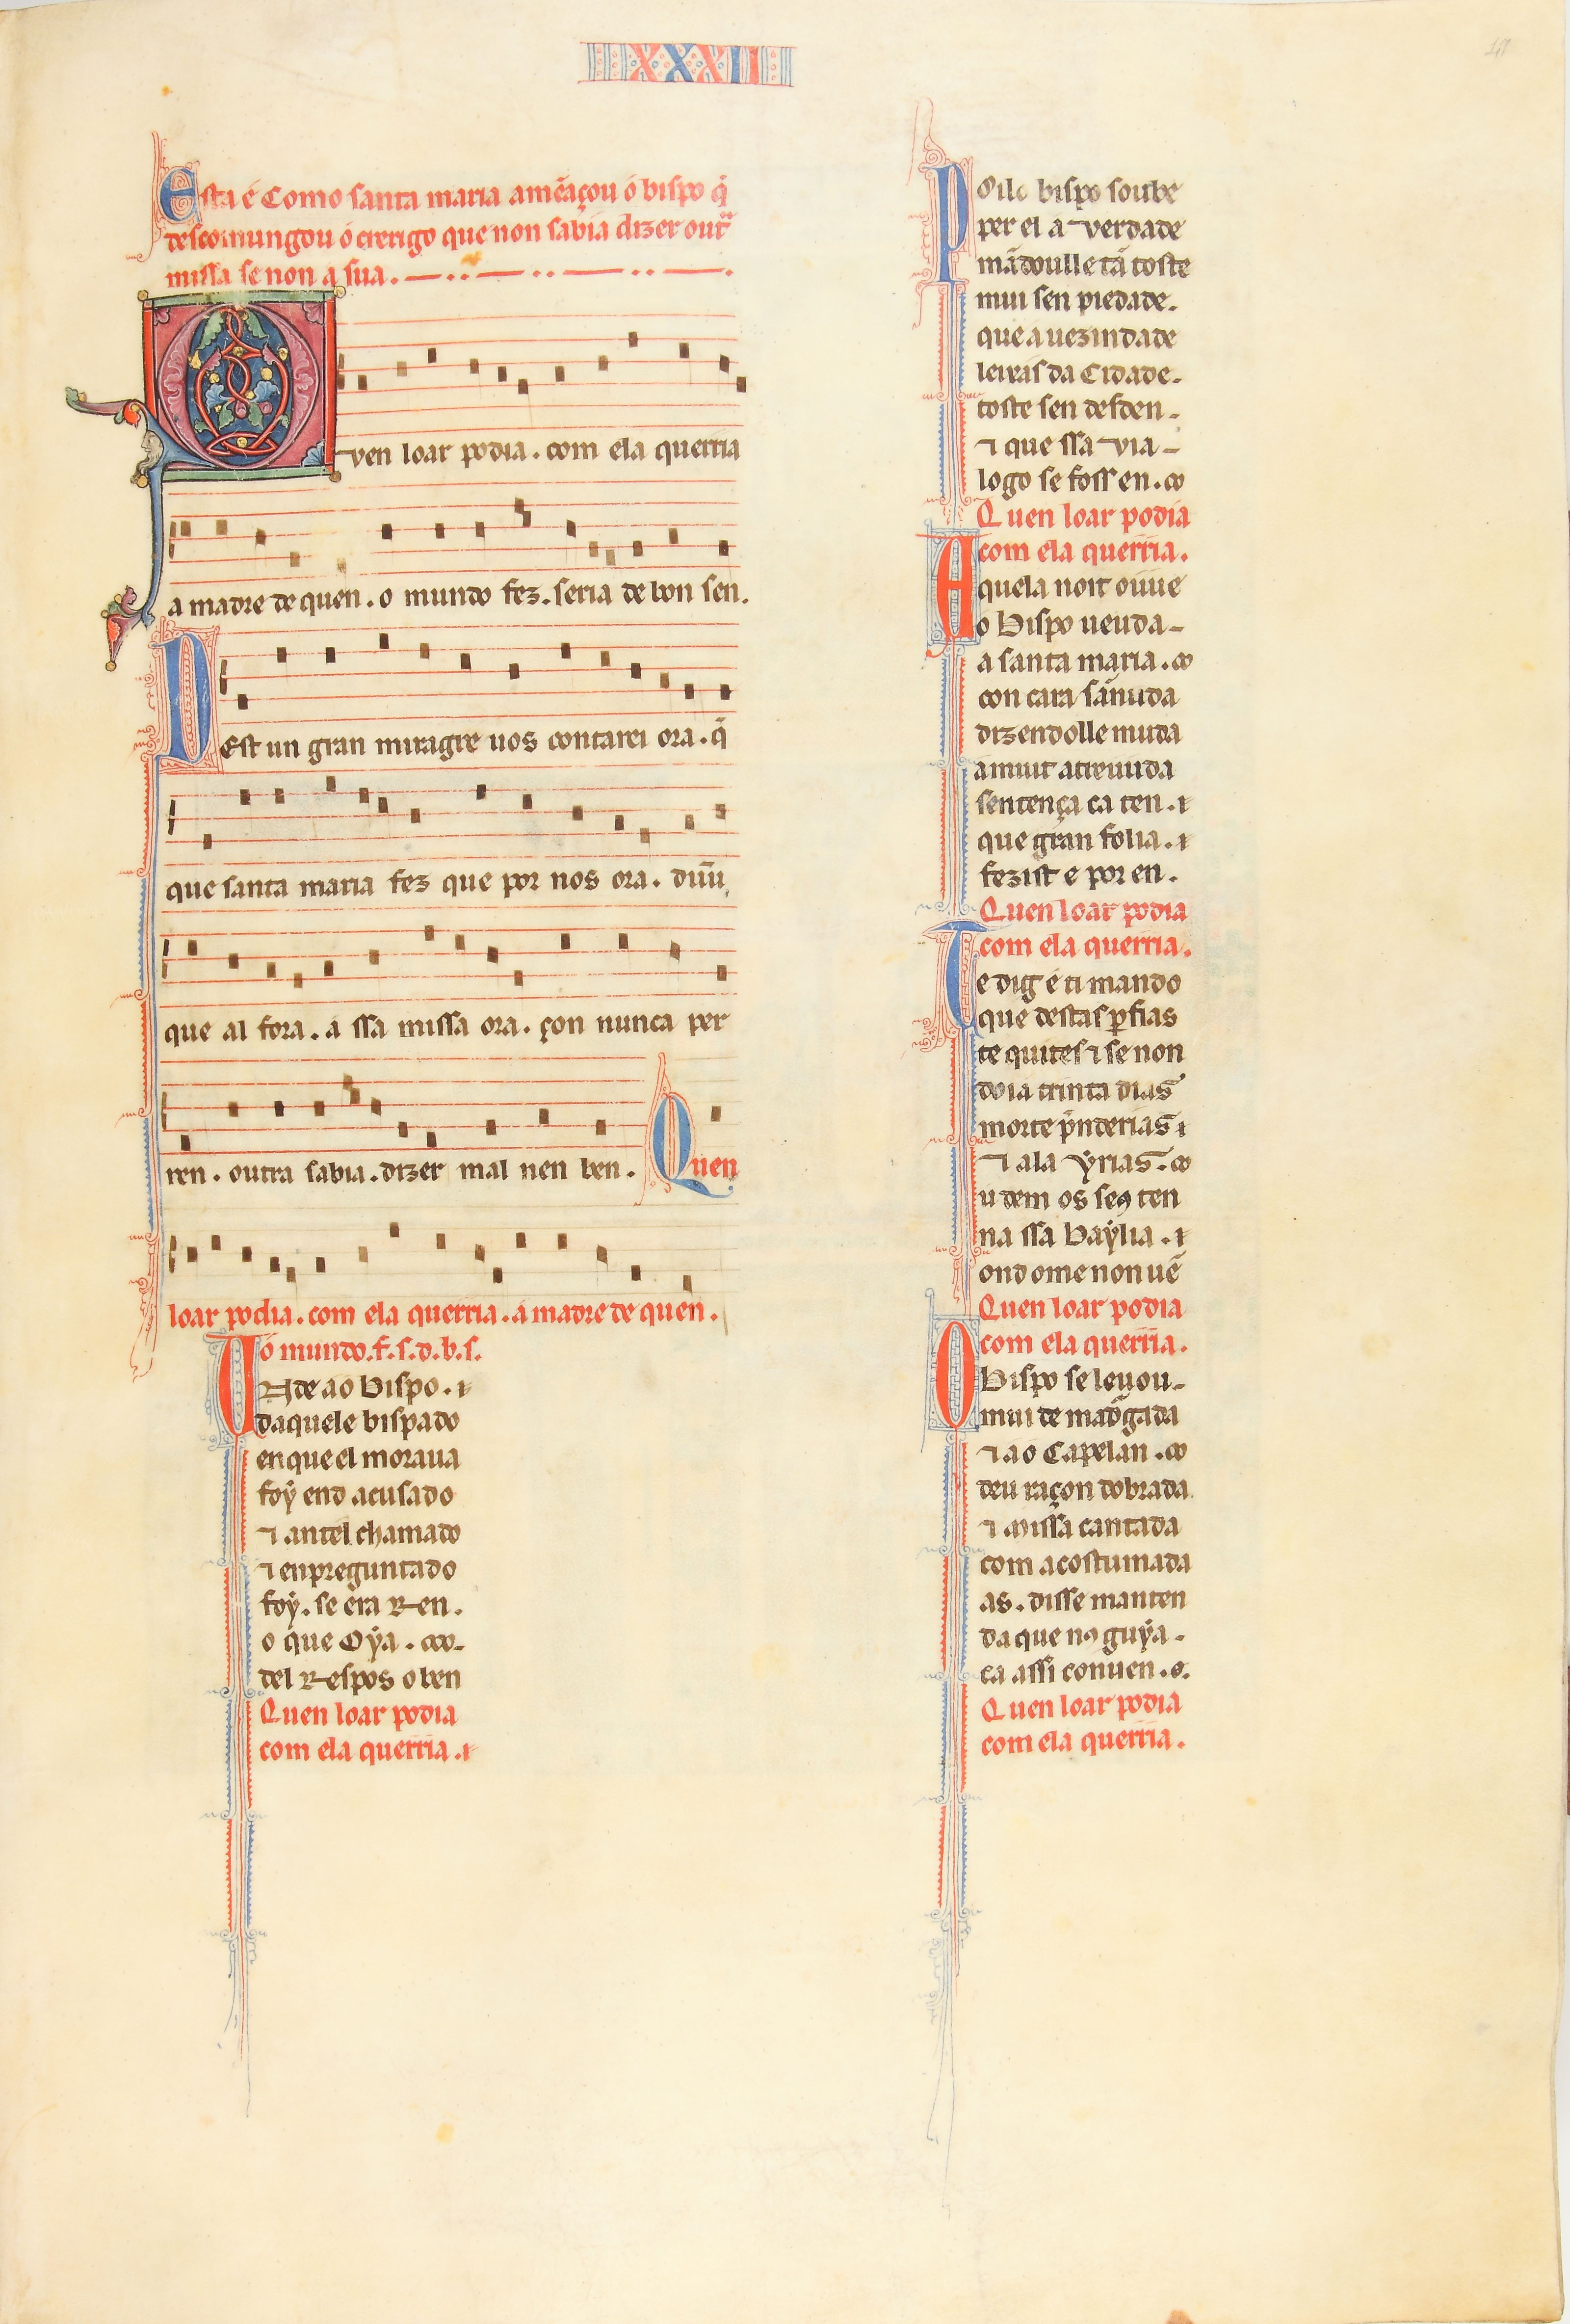 XXXII
Esta é Como santa maria amẽaçou o bispo q̃
descomungou o crerigo que non sabia dizer outra
missa se non a sua.
Quen loar podia. com ela querria
a madre de quen. o mundo fez. seria de bon sen.
Dest un gran miragre uos contarei ora. q̃
que santa maria fez que por nos ora. dũu
que al fora. a ssa missa ora. çon nunca per
ren. outra sabia. dizer mal nen ben. Quen
loar podia. com ela querria. a madre de quen.
o mundo. f. s. d. b. s.
Ende ao bispo.
daquele bispado
en que el moraua
foy end acusado
⁊ antel chamado
⁊ enpreguntado
foẏ. se era Ren.
o que Oẏa.
del Respos o ben
Quen loar podia
com ela querria.
Poilo bispo soube
per el a verdade
mãdoulle tã toste
mui sen piedade.
que a uezindade
leixas da Cidade.
toste sen desden.
⁊ que ssa via
logo se foss en.
Quen loar podia
com ela querria.
Aquela noit ouue
o bispo ueuda
a santa maria.
con cara sãnuda
dizendolle muda
a muit atreuuda
sentença ca ten.
que gran folia.
fezist e por en.
Quen loar podia
com ela querria.
Te dig e ti mando
que destas ꝑfias
te quites ⁊ se non
doia trinta dias
morte p̃nderias
⁊ ala ẏrias.
u dem os seꝯ ten
na ssa baẏlia.
ond ome non uẽ
Quen loar podia
com ela querria.
O bispo se leuou
mui de mad̃gada
⁊ ao Capelan.
deu raçon dobrada
⁊ missa cantada
com acostumada
as. disse manten
da que nꝯ guẏa.
ca assi conuen.
Quen loar podia
com ela querria.